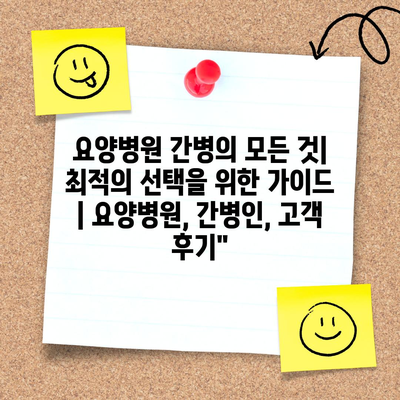 요양병원 간병의 모든 것|
최적의 선택을 위한 가이드
| 요양병원, 간병인, 고객
후기"